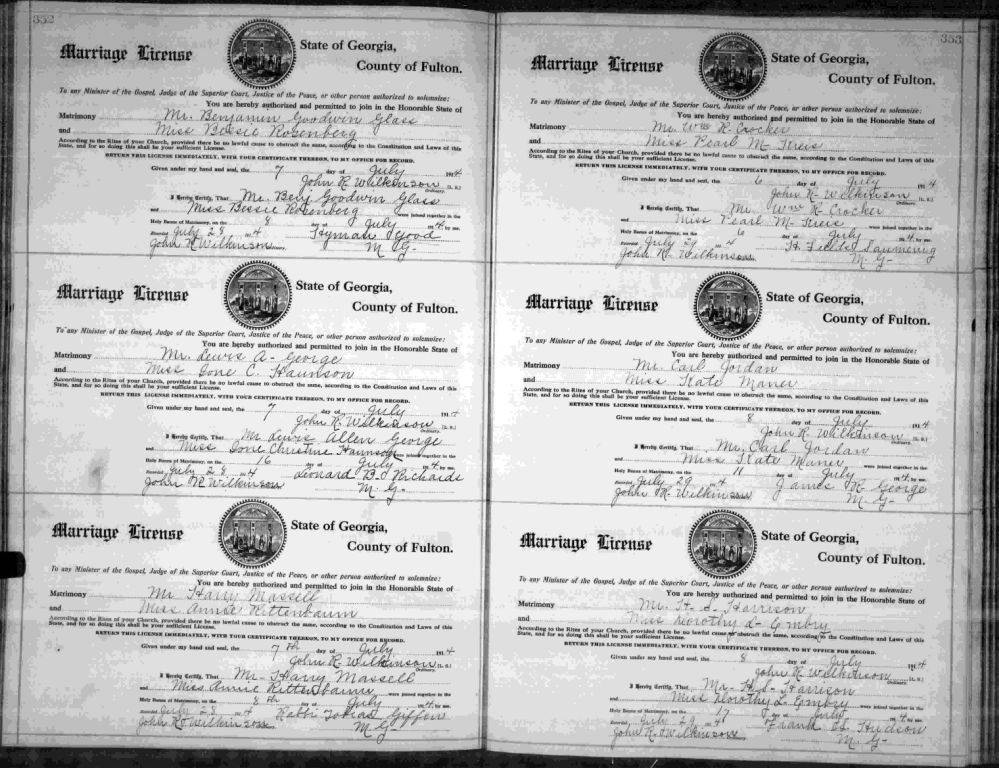 352
Marriage License
State of Georgia,
County of Fulton.
To any Minister of the Gospel, Judge of the Superior Court, Justice of the Peace, or other person authorized to solemnize:
You are hereby authorized and permitted to join in the Honorable State of
Matrimony Mr. Benjamin Goodwin Glass
and Miss Bessie Rosenberg
According to the Rites of your Church, provided there be no lawful cause to obstruct the same, according to the Constitution and Laws of this
State, and for so doing this shall be your sufficient License.
RETURN THIS LICENSE IMMEDIATELY, WITH YOUR CERTIFICATE THEREON, TO MY OFFICE FOR RECORD.
Given under my hand and seal, the 7 day of July 1914
John R. Wilkinson [L. S.]
Ordinary.
I Hereby Certify, That Mr. Benj Goodwin Glass
and Miss Bessie Rosenberg were joined together in the
Holy Bonds of Matrimony, on the 8 day of July 1914, by me.
Recorded July 28 1914 Hyman Yood
John R. Wilkinson M G-
Marriage License
State of Georgia,
County of Fulton.
To any Minister of the Gospel, Judge of the Superior Court, Justice of the Peace, or other person authorized to solemnize:
You are hereby authorized and permitted to join in the Honorable State of
Matrimony Mr. Lewis A- George
and Miss Ione C.
According to the Rites of your Church, provided there be no lawful cause to obstruct the same, according to the Constitution and Laws of this
State, and for so doing this shall be your sufficient License.
RETURN THIS LICENSE IMMEDIATELY, WITH YOUR CERTIFICATE THEREON, TO MY OFFICE FOR RECORD.
Given under my hand and seal, the 7 day of July 1914
John R. Wilkinson [L. S.]
Ordinary.
I Hereby Certify, That Mr Lewis Allen George
and Miss Ione Christine were joined together in the
Holy Bonds of Matrimony, on the 16 day of July 1914, by me.
Recorded July 28 1914 Leonard B. Richards
John R. Wilkinson M G-
Marriage License
State of Georgia,
County of Fulton.
To any Minister of the Gospel, Judge of the Superior Court, Justice of the Peace, or other person authorized to solemnize:
You are hereby authorized and permitted to join in the Honorable State of
Matrimony Mr Harry Massell
and Miss Annie Rittenbaum
According to the Rites of your Church, provided there be no lawful cause to obstruct the same, according to the Constitution and Laws of this
State, and for so doing this shall be your sufficient License.
RETURN THIS LICENSE IMMEDIATELY, WITH YOUR CERTIFICATE THEREON, TO MY OFFICE FOR RECORD.
Given under my hand and seal, the 7th day of July 1914
John R. Wilkinson [L. S.]
Ordinary.
I Hereby Certify, That Mr- Harry Massell
and Miss Annie Rittenbaum were joined together in the
Holy Bonds of Matrimony, on the 8th day of July 1914, by me.
Recorded July 28 1914 Rabbi Tobias Geffen
John R. Wilkinson M-G-
353
Marriage License
State of Georgia,
County of Fulton.
To any Minister of the Gospel, Judge of the Superior Court, Justice of the Peace, or other person authorized to solemnize:
You are hereby authorized and permitted to join in the Honorable State of
Matrimony Mr. Wm R. Crocker
and Miss Pearl M-
According to the Rites of your Church, provided there be no lawful cause to obstruct the same, according to the Constitution and Laws of this
State, and for so doing this shall be your sufficient License.
RETURN THIS LICENSE IMMEDIATELY, WITH YOUR CERTIFICATE THEREON, TO MY OFFICE FOR RECORD.
Given under my hand and seal, the 6 day of July 1914
John R- Wilkinson
Ordinary.
I Hereby Certify, That Mr. Wm R- Crocker
and Miss Pearl M- were joined together in the
Holy Bonds of Matrimony, on the 6 day of July 1914, by me.
Recorded July 29 1914 H.
John R. Wilkinson M- G-
Marriage License
State of Georgia,
County of Fulton.
To any Minister of the Gospel, Judge of the Superior Court, Justice of the Peace, or other person authorized to solemnize:
You are hereby authorized and permitted to join in the Honorable State of
Matrimony Mr. Carl Jordan
and Miss Kate Maner
According to the Rites of your Church, provided there be no lawful cause to obstruct the same, according to the Constitution and Laws of this
State, and for so doing this shall be your sufficient License.
RETURN THIS LICENSE IMMEDIATELY, WITH YOUR CERTIFICATE THEREON, TO MY OFFICE FOR RECORD.
Given under my hand and seal, the 8 day of July 1914
John R. Wilkinson [L. S.]
Ordinary.
I Hereby Certify, That Mr. Carl Jordan
and Miss Kate Maner were joined together in the
Holy Bonds of Matrimony, on the 11 day of July 1914, by me.
Recorded July 29 1914 James R. George
John R. Wilkinson M- G-
Marriage License
State of Georgia,
County of Fulton.
To any Minister of the Gospel, Judge of the Superior Court, Justice of the Peace, or other person authorized to solemnize:
You are hereby authorized and permitted to join in the Honorable State of
Matrimony Mr. H. S. Harrison
and Miss Dorothy L- Embry
According to the Rites of your Church, provided there be no lawful cause to obstruct the same, according to the Constitution and Laws of this
State, and for so doing this shall be your sufficient License.
RETURN THIS LICENSE IMMEDIATELY, WITH YOUR CERTIFICATE THEREON, TO MY OFFICE FOR RECORD.
Given under my hand and seal, the 8 day of July 1914
John R. Wilkinson [L. S.]
Ordinary.
I Hereby Certify, That Mr- H. S- Harrison
and Miss Dorothy L. Embry were joined together in the
Holy Bonds of Matrimony, on the 17 day of July 1914, by me.
Recorded July 29 1914 Frank Hudson
John R. Wilkinson M- G-